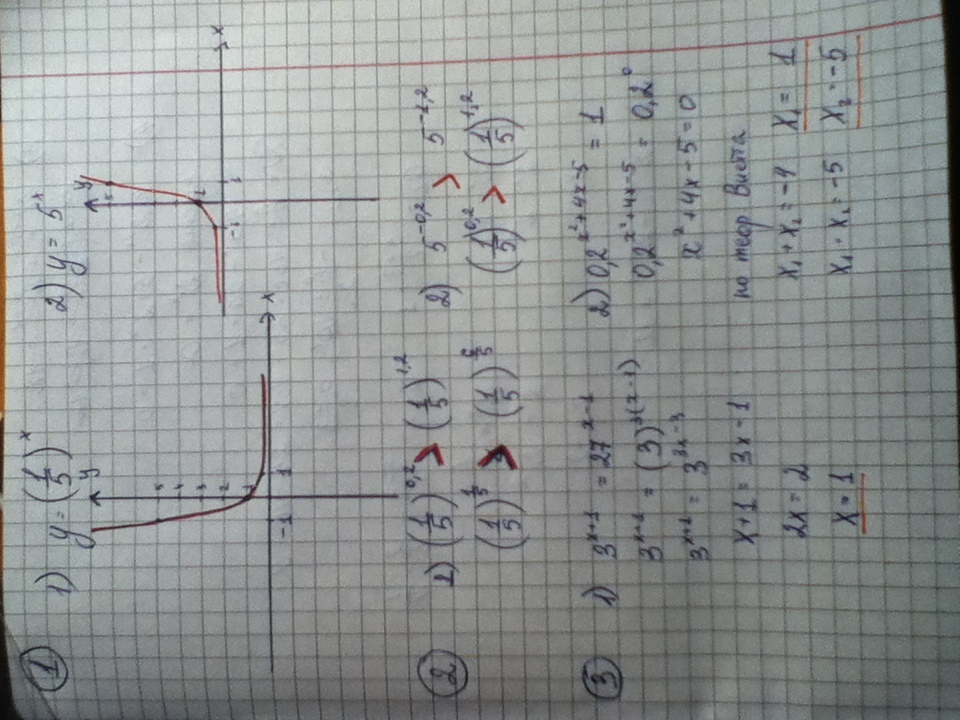 ① 1) y = (1/5)^x
y
5
4
3
2
1
-1 1 x
2) y = 5^x
y
5
1
-1 1 x
② 1) (1/5)^0,2 > (1/5)^1,2
(1/5)^(1/5) > (1/5)^(6/5)
2) 5^-0,2 > 5^-1,2
(1/5)^0,2 > (1/5)^1,2
③ 1) 3^(x+1) = 27^(x-1)
3^(x+1) = (3)^3(x-1)
3^(x+1) = 3^(3x-3)
x+1 = 3x-1
2x = 2
x = 1
2) 0,2^(x²+4x-5) = 1
0,2^(x²+4x-5) = 0,2^0
x²+4x-5=0
по теор Виета
x₁+x₂ = -4 x₁ = 1
x₁·x₂ = -5 x₂ = -5